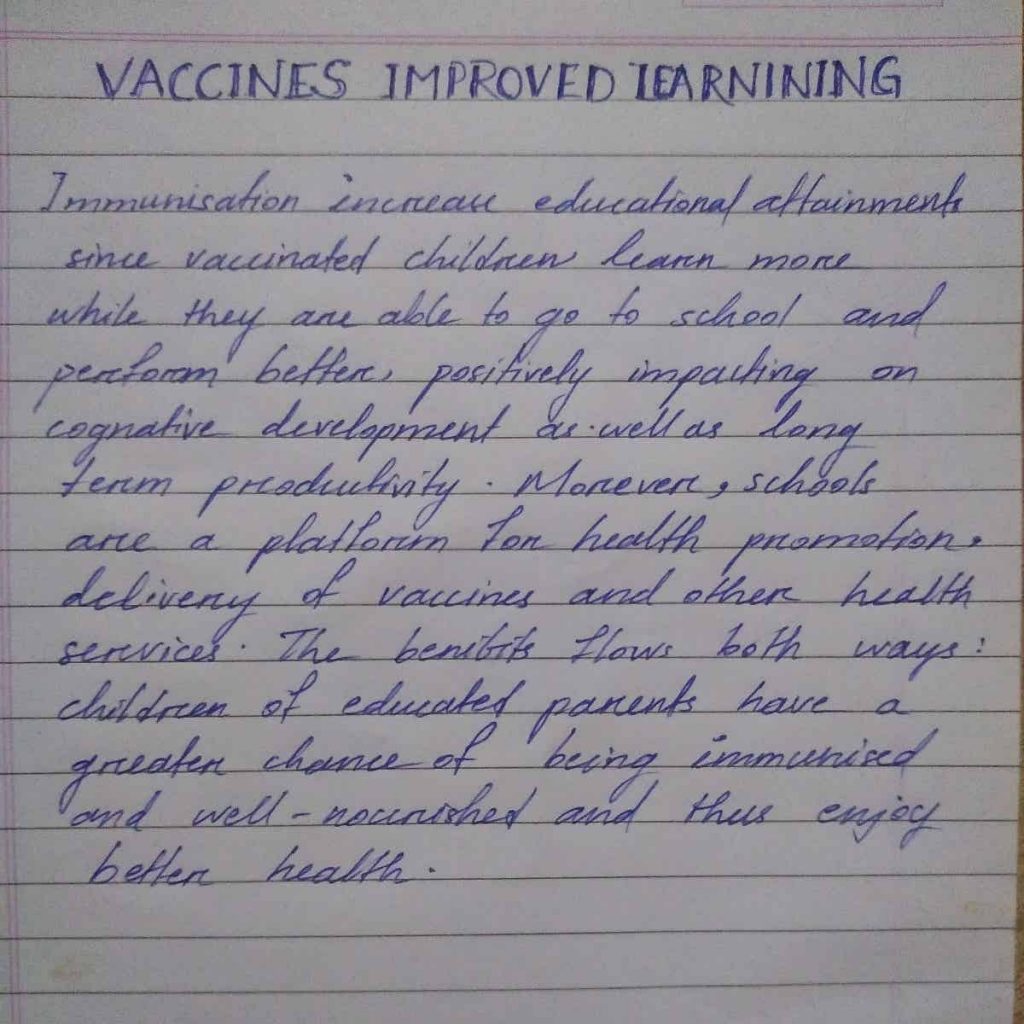 VACCINES IMPROVED LEARNINING
Immunisation increase educational attainments
since vaccinated children learn more
while they are able to go to school and
perform better, positively impacting on
cognative development as well as long
term productivity. Morever, schools
are a platform for health promotion,
delivery of vaccines and other health
services. The benibits flows both ways:
children of educated parents have a
greater chance of being immunised
and well-nourished and thus enjoy
better health.